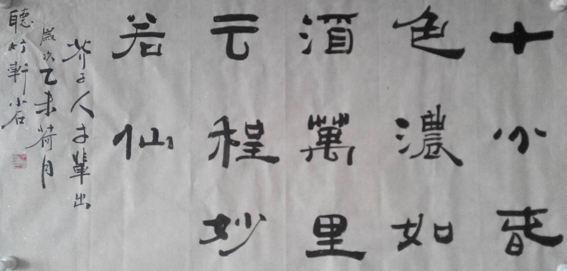 十分春
色濃如
酒萬里
云程妙
若仙
芥子人才輩出
歲次乙未荷月
聽竹軒小石